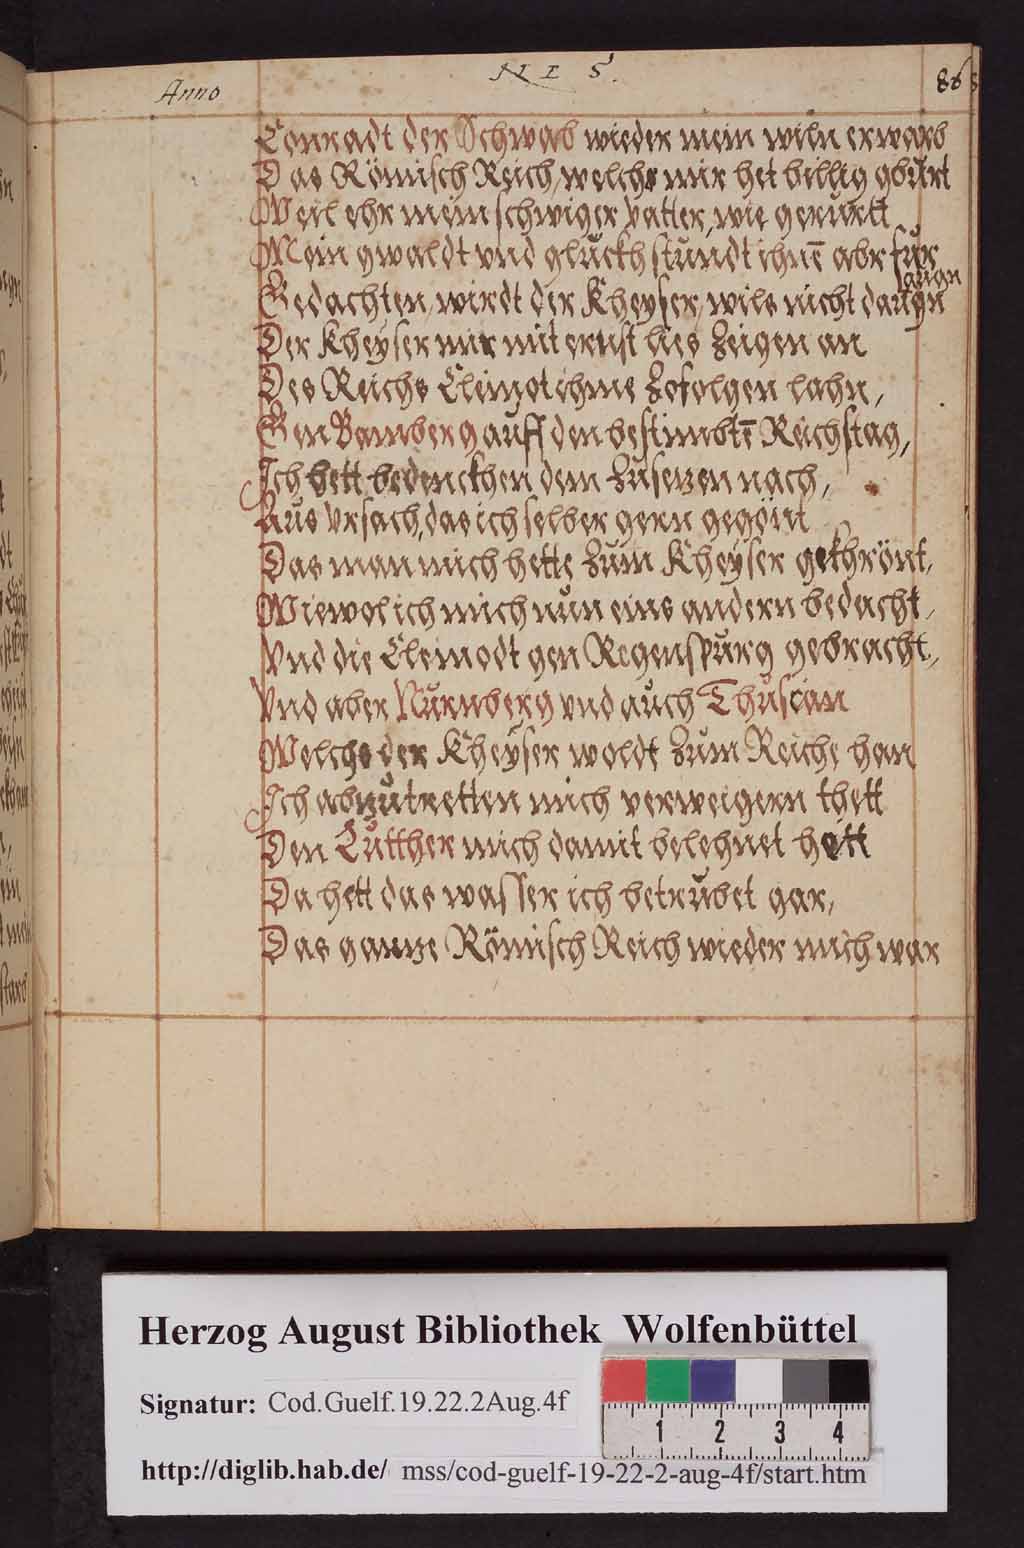 N I 5.
Anno
Conradt der Schwab wieder mein wiln erwarb
Das Römisch Reich, welchs mir het billig gburt
Weil ehr mein schwiger vatter, wie gerurtt
Mein gwaldt vnd glückh stundt ihnē abr für
augn
Gedachten, wirdt der Kheyser, wils nicht daugn
Der Kheyser mir mit ernst lies Zeigen an
Des Reichs Cleinot ihme Zofolgen lahn,
Gen Bamberg auff den bestimbtē Reichstag,
Ich hett bedenckhen dem Zusetzen nach,
Aus vrsach, das ich selber gern gegönt
Das man mich hette Zum Kheyser gekhrönt,
Wiewol ich mich nun eins andern bedacht,
Vnd die Cleinodt gen Regenspurg gebracht,
Vnd aber Nurnberg vnd auch Thuscian
Welchs der Kheyser woldt Zum Reiche han
Ich abzutretten mich verweigern thett
Den Lutther mich damit belehnet hett
Da hett das wasser ich betrubet gar,
Das gantze Römisch Reich wieder mich war
Herzog August Bibliothek Wolfenbüttel
Signatur: Cod.Guelf.19.22.2Aug.4f
1 2 3 4
http://diglib.hab.de/ mss/cod-guelf-19-22-2-aug-4f/start.htm